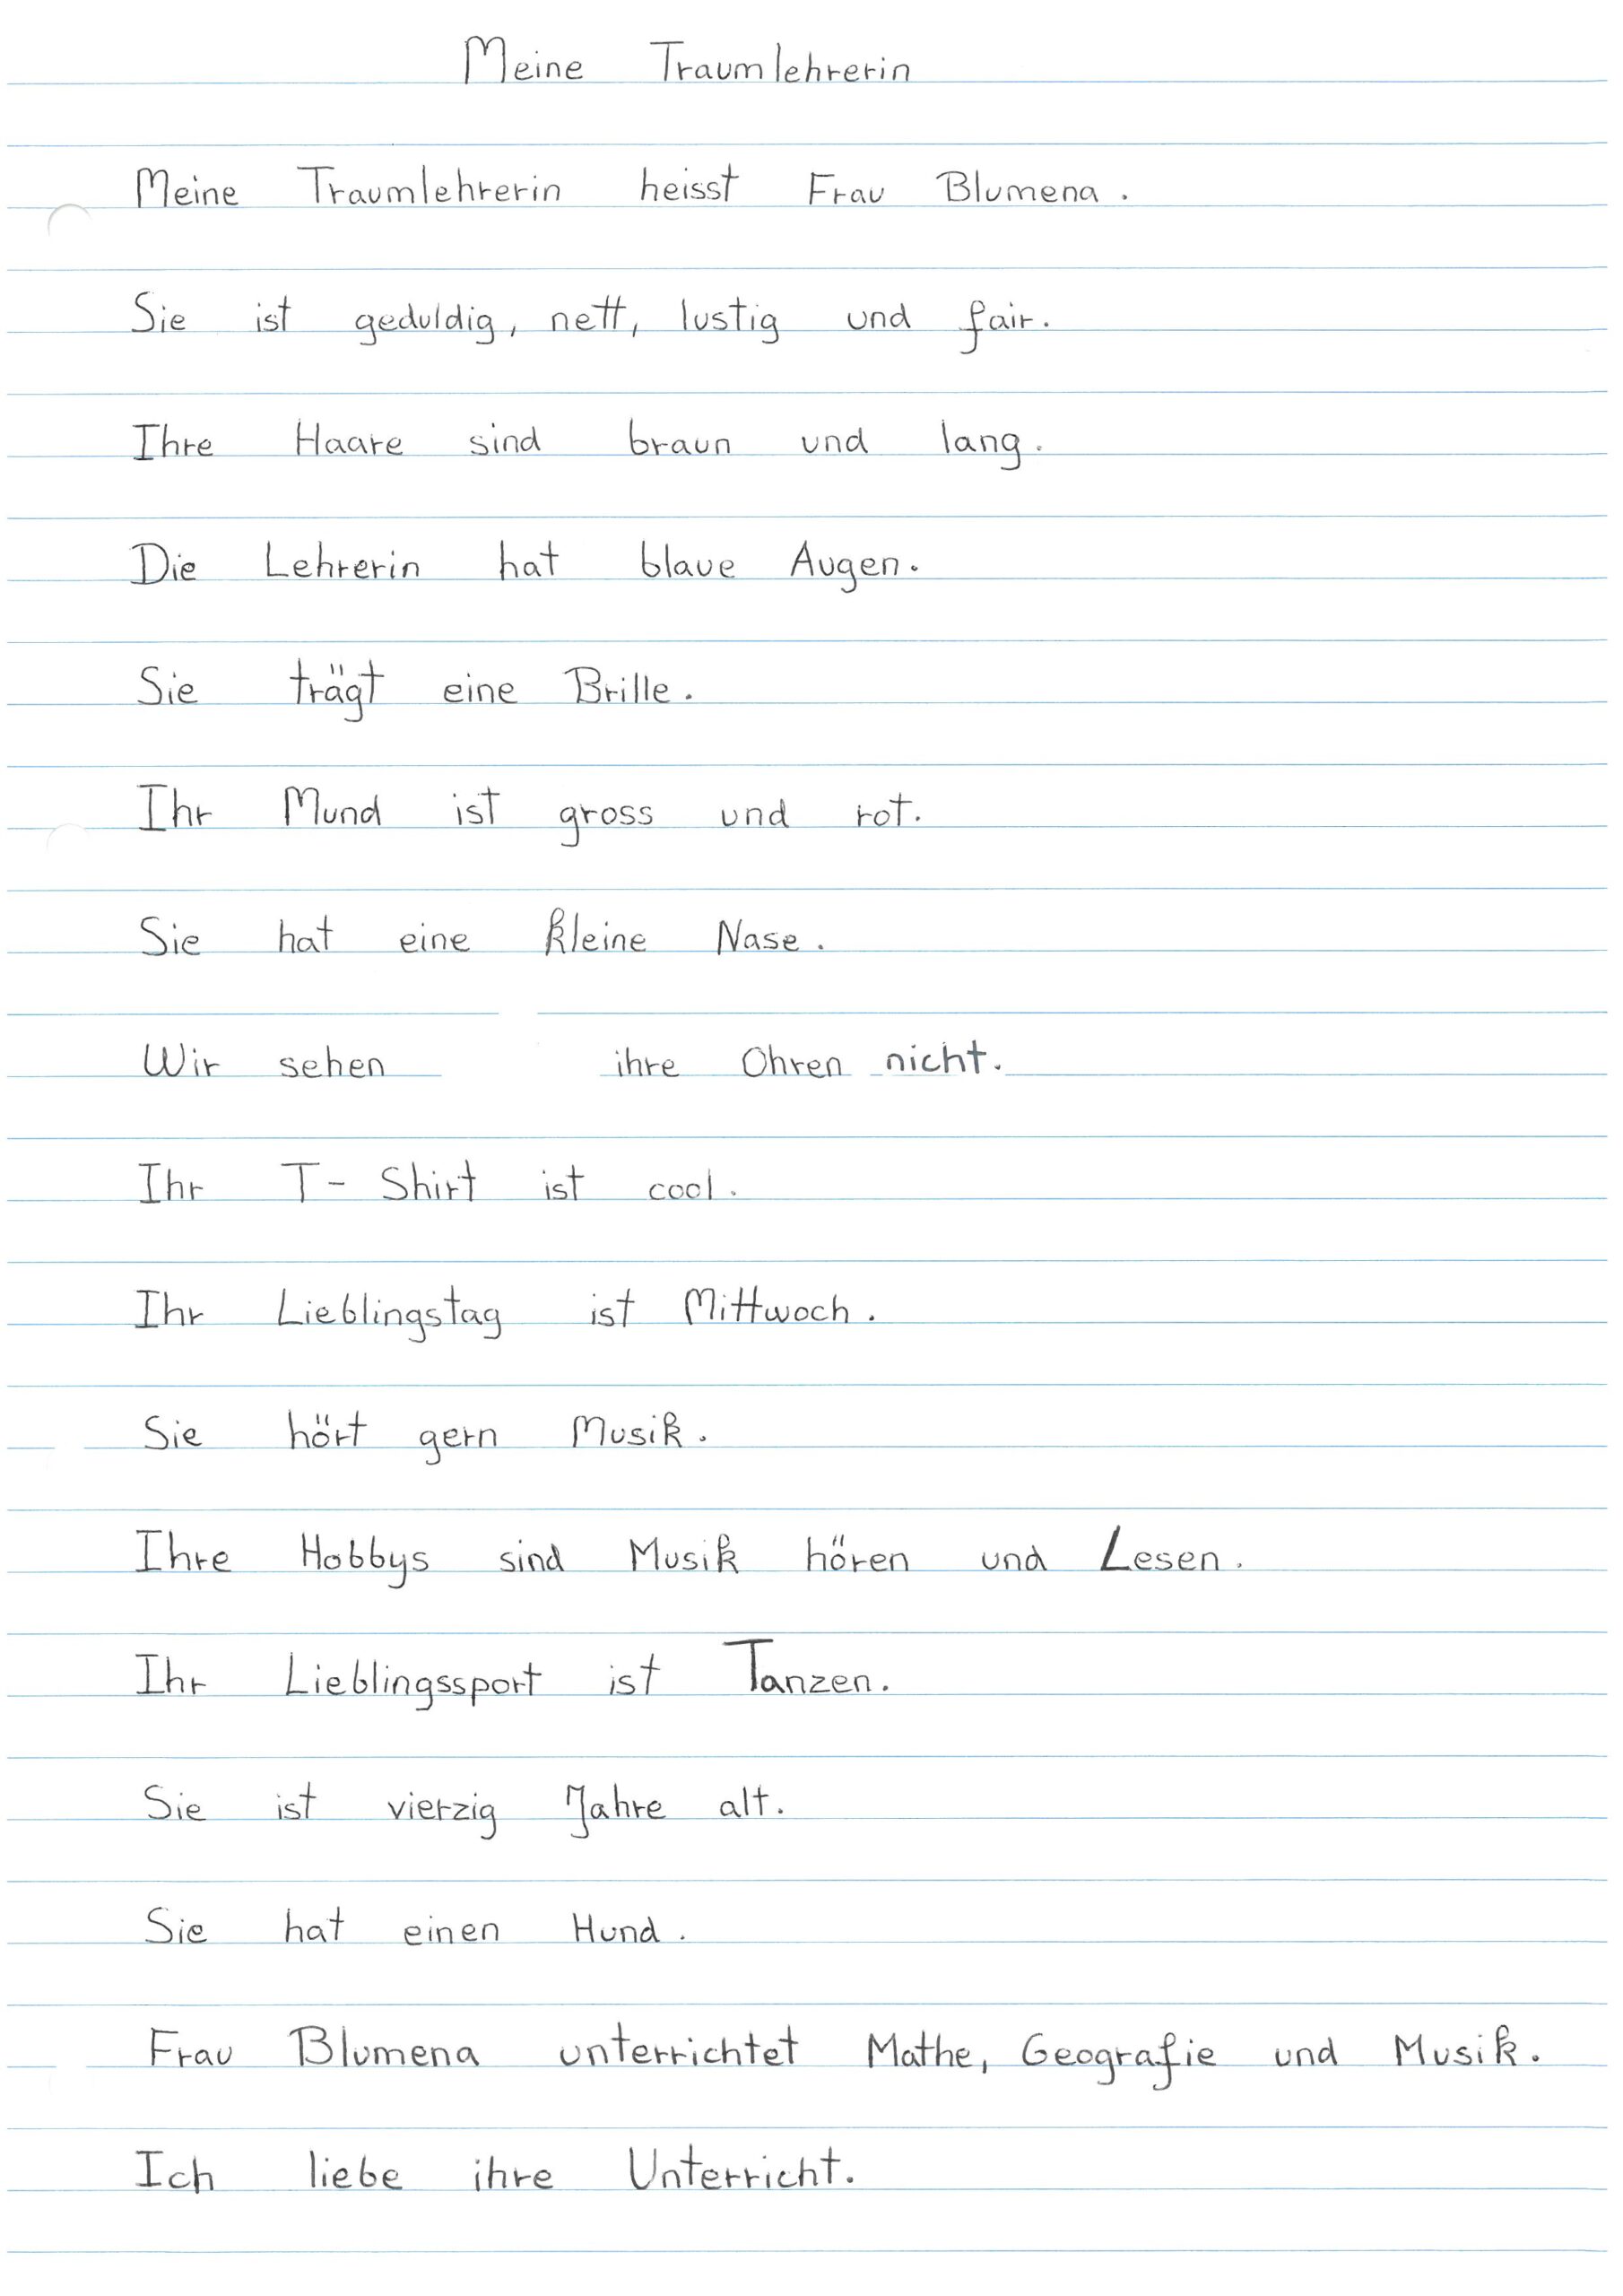 Meine Traumlehrerin
Meine Traumlehrerin heisst Frau Blumena.
Sie ist geduldig, nett, lustig und fair.
Ihre Haare sind braun und lang.
Die Lehrerin hat blaue Augen.
Sie trägt eine Brille.
Ihr Mund ist gross und rot.
Sie hat eine kleine Nase.
Wir sehen ihre Ohren nicht.
Ihr T-Shirt ist cool.
Ihr Lieblingstag ist Mittwoch.
Sie hört gern Musik.
Ihre Hobbys sind Musik hören und Lesen.
Ihr Lieblingssport ist Tanzen.
Sie ist vierzig Jahre alt.
Sie hat einen Hund.
Frau Blumena unterrichtet Mathe, Geografie und Musik.
Ich liebe ihre Unterricht.